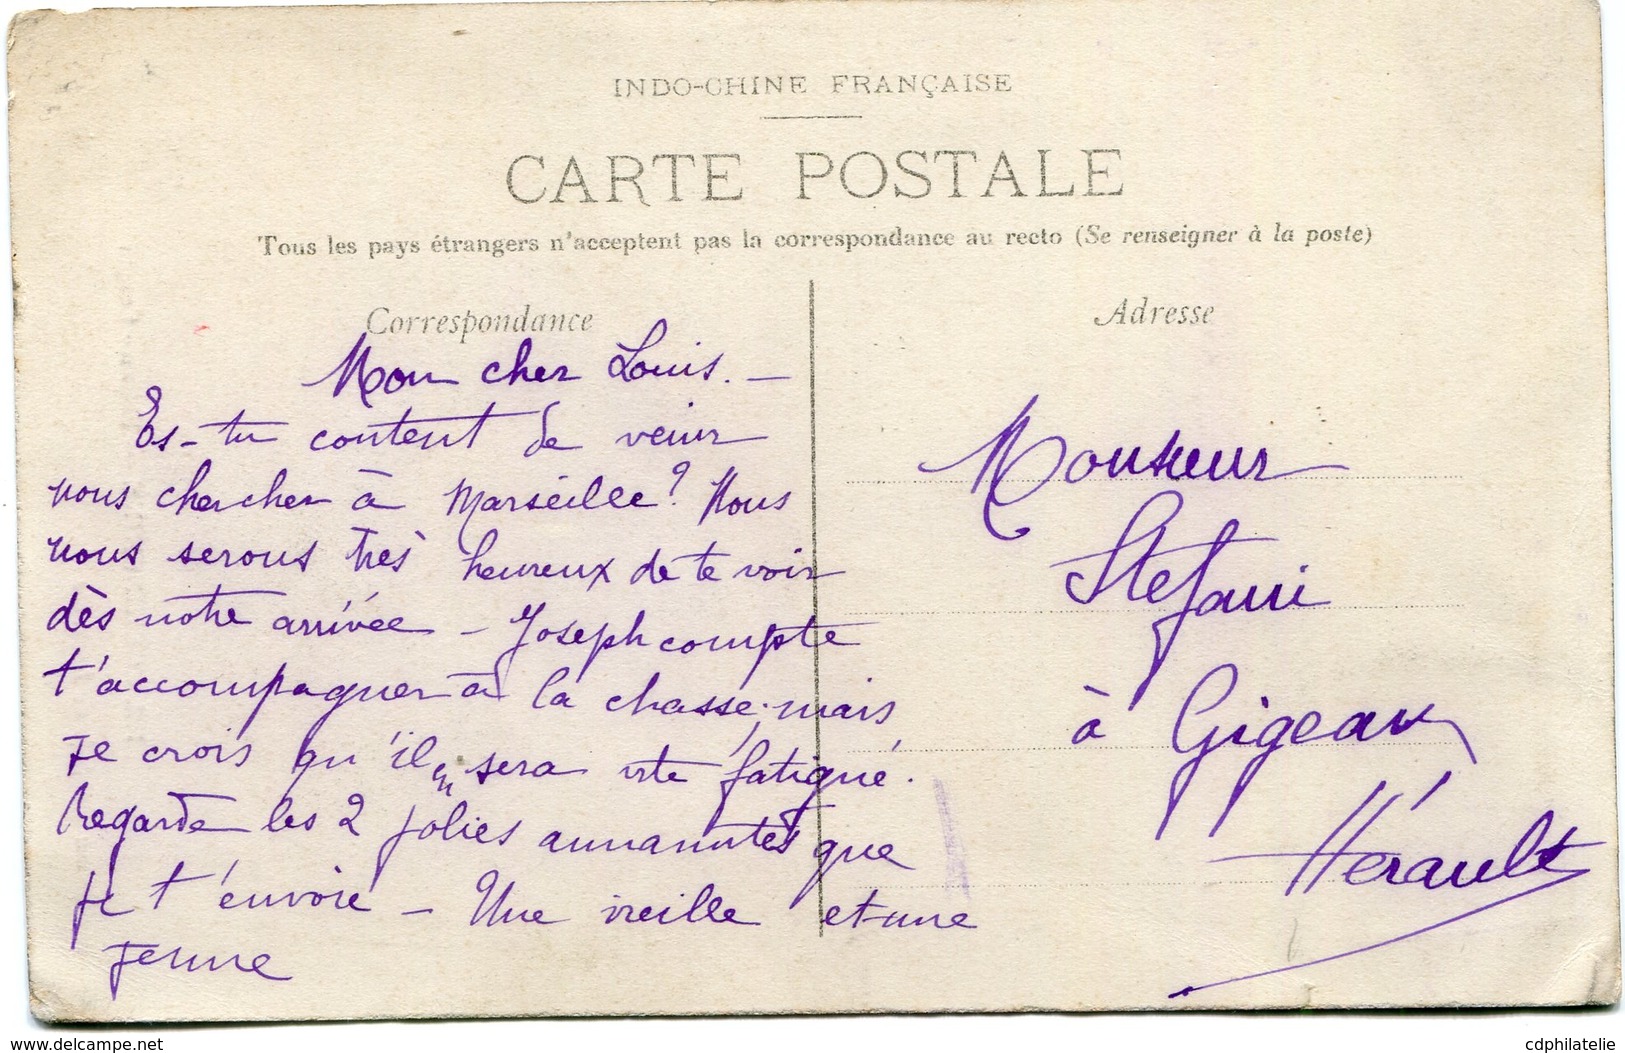 INDO-CHINE FRANÇAISE
CARTE POSTALE
Tous les pays étrangers n'acceptent pas la correspondance au recto (Se renseigner à la poste)
Correspondance
Mon cher Louis. –
Es-tu content de venir
nous chercher à Marseille? Nous
nous serons très heureux de te voir
dès notre arrivée – Joseph compte
t'accompagner à la chasse; mais
je crois qu'il en sera vite fatigué.
Regarde les 2 jolies annamites que
je t'envoie – Une vieille et une
jeune
Adresse
Monsieur
Stefani
à Gigean
Hérault
delcampe.net
cdphilatelie